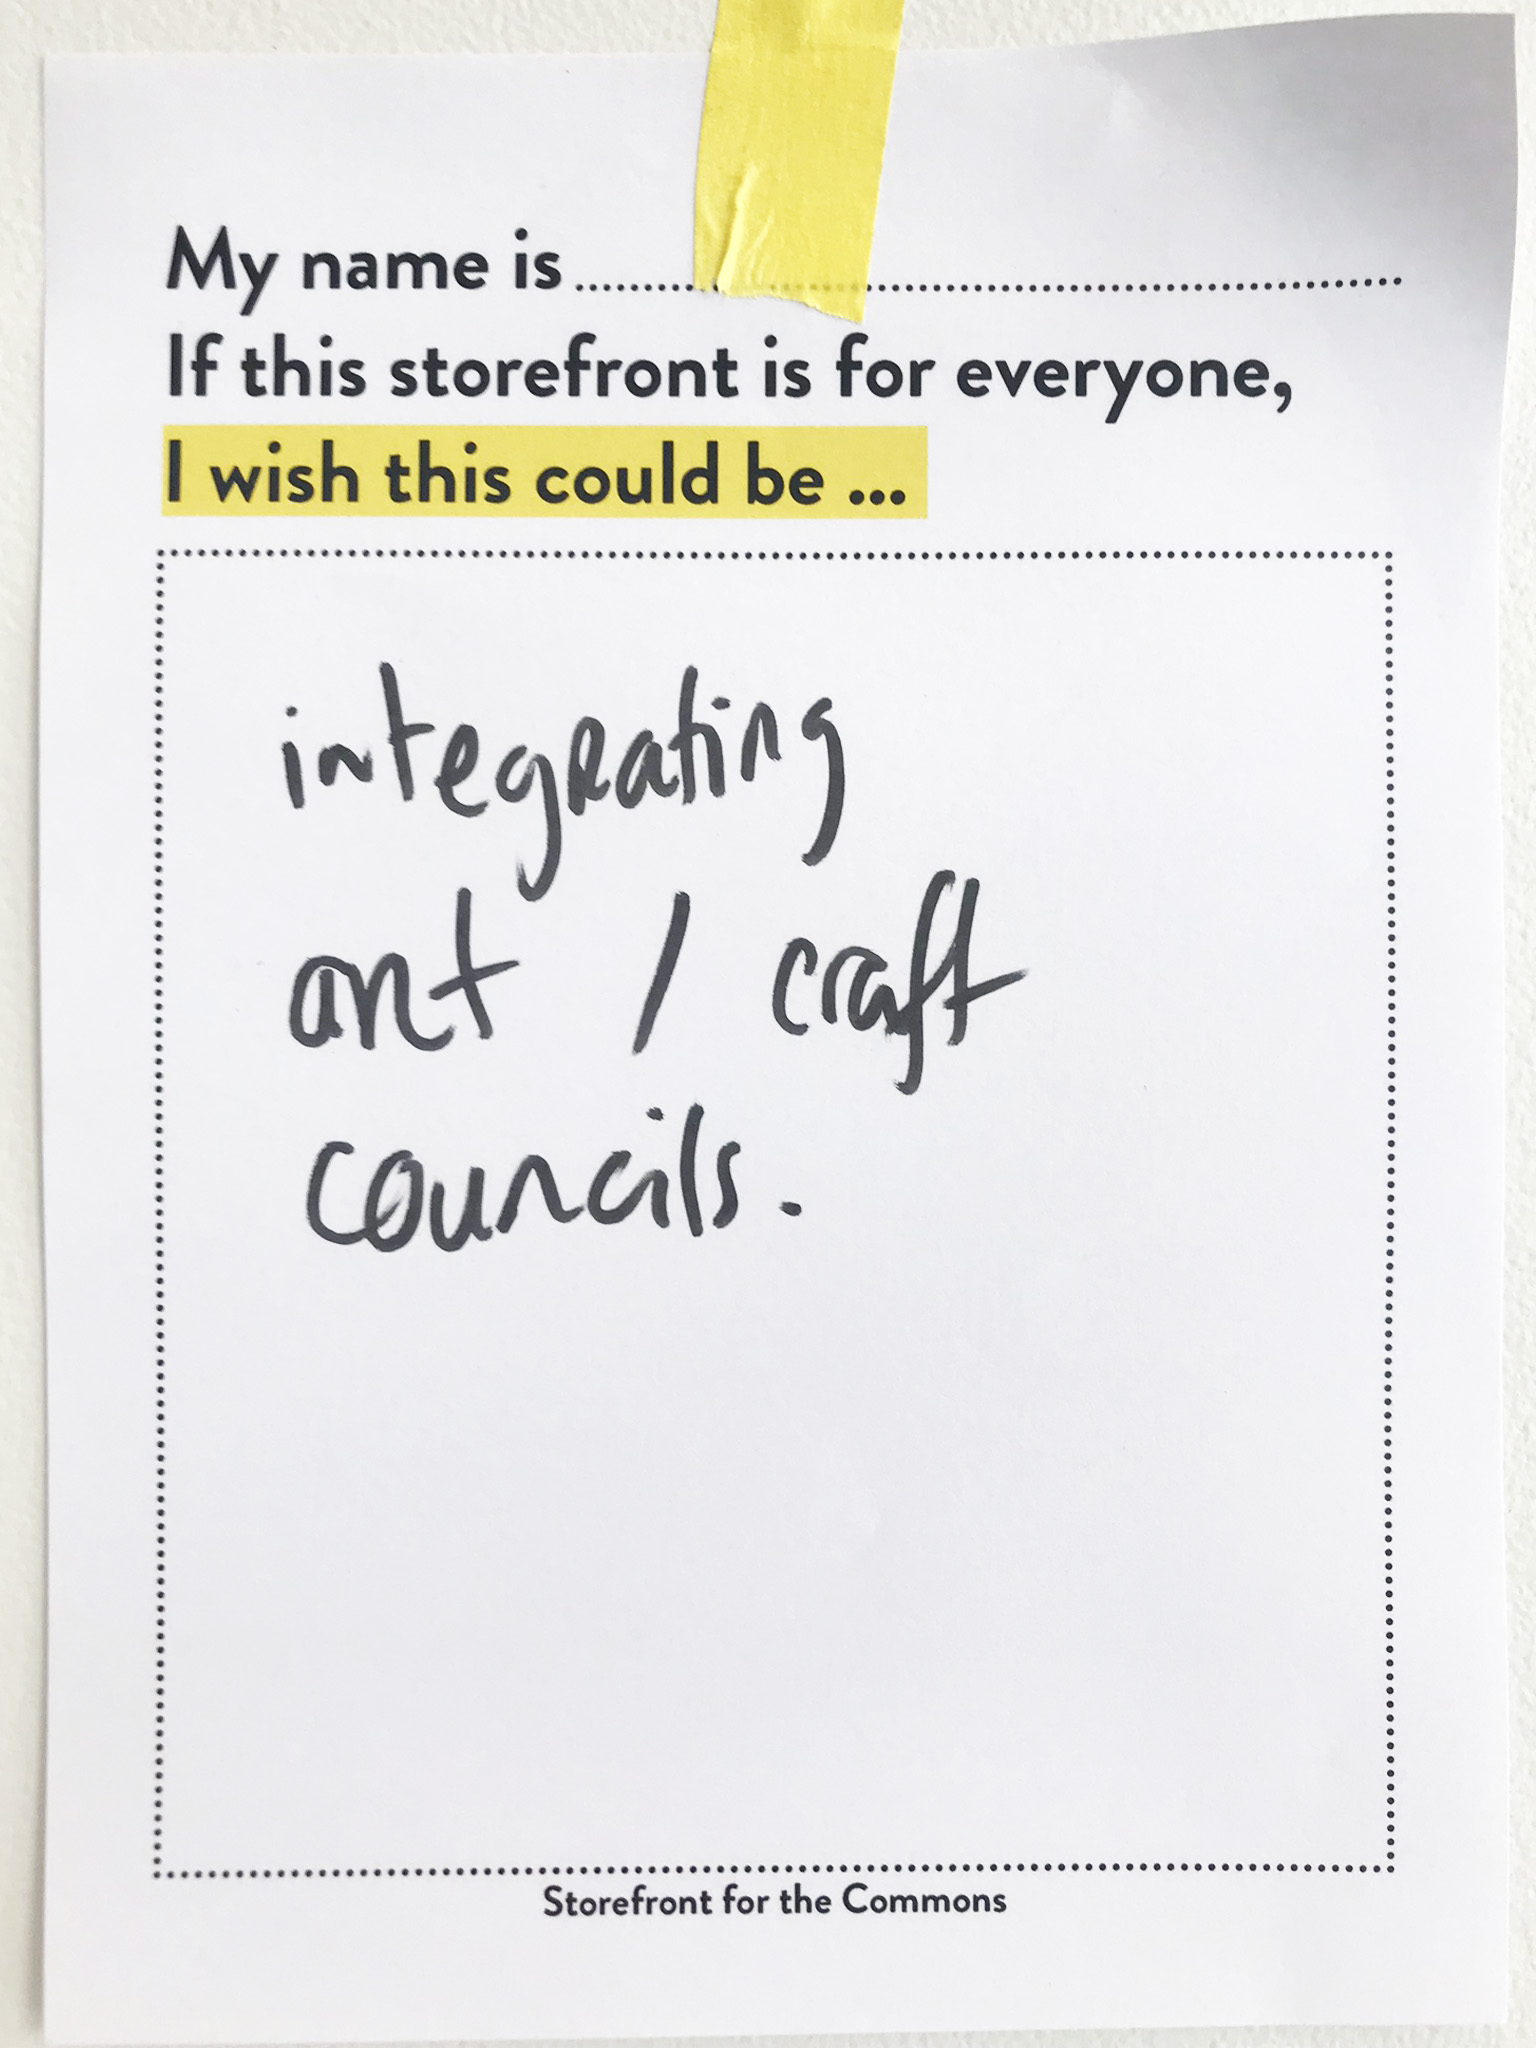 My name is
If this storefront is for everyone,
I wish this could be ...
integrating
art / craft
councils.
Storefront for the Commons